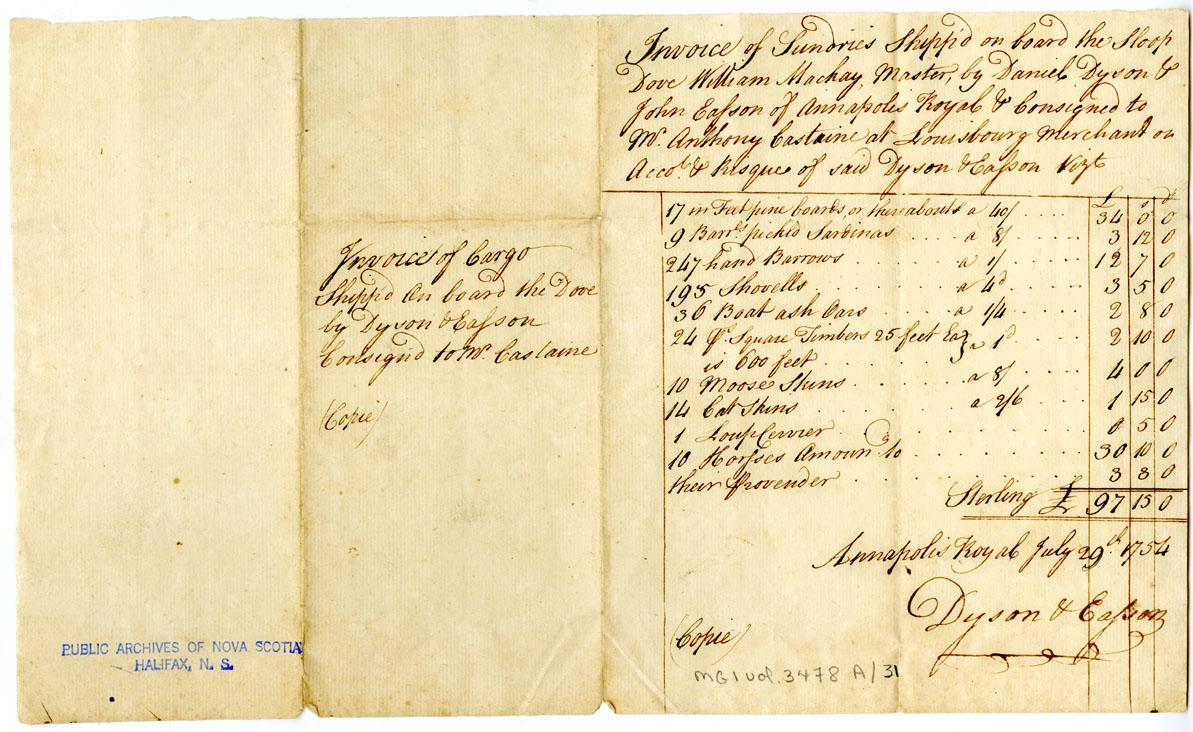 Invoice of Cargo
Shipp'd On board the Dove
by Dyson & Easson
Consign'd to Mr. Castaine
(Copie)
PUBLIC ARCHIVES OF NOVA SCOTIA
HALIFAX, N. S.
Invoice of Sundries Shipp'd on board the Sloop
Dove William Mackay, Master, by Daniel Dyson &
John Easson of Annapolis Royal & Consigned to
Mr. Anthony Castaine at Louisbourg Merchant on
Acco.t & Risque of said Dyson & Easson Vizt
£ s d
17 m Feet pine boards or thereabouts a 40/ .... 34 0 0
9 Barrls pickld Sardinas .... a 8/ .... 3 12 0
247 hand Barrows .... a 1/ .... 12 7 0
195 Shovells .... a 4d .... 3 5 0
36 Boat ash Oars .... a 1/4 .... 2 8 0
24 Ps. Square Timbers 25 feet Ea } a 1d .... 2 10 0
is 600 feet
10 Moose Skins .... a 8/ .... 4 0 0
14 Cat Skins .... a 2/6 .... 1 15 0
1 Loup Cervier .... 0 5 0
10 Horses Amoung to .... 30 10 0
their Provender .... 3 3 0
Sterling £ 97 15 0
Annapolis Royal July 29th 1754
Dyson & Easson
(Copie)
MG1 vol. 3478 A/31